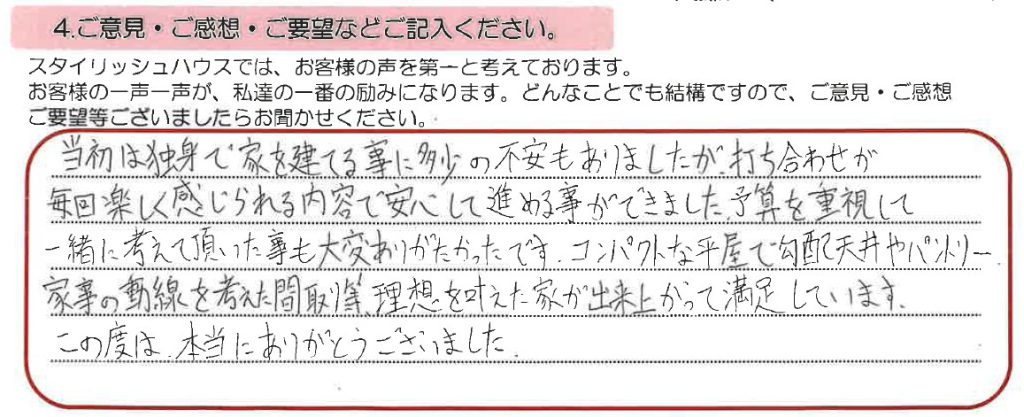 4.ご意見・ご感想・ご要望などご記入ください。
スタイリッシュハウスでは、お客様の声を第一と考えております。
お客様の一声一声が、私達の一番の励みになります。どんなことでも結構ですので、ご意見・ご感想
ご要望等ございましたらお聞かせください。
当初は独身で家を建てる事に多少の不安もありましたが、打ち合わせが
毎回楽しく感じられる内容で安心して進める事ができました。予算を重視して
一緒に考えて頂いた事も大変ありがたかったです。コンパクトな平屋で勾配天井やパントリー
家事の動線を考えた間取り等、理想を叶えた家が出来上がって満足しています。
この度は、本当にありがとうございました。